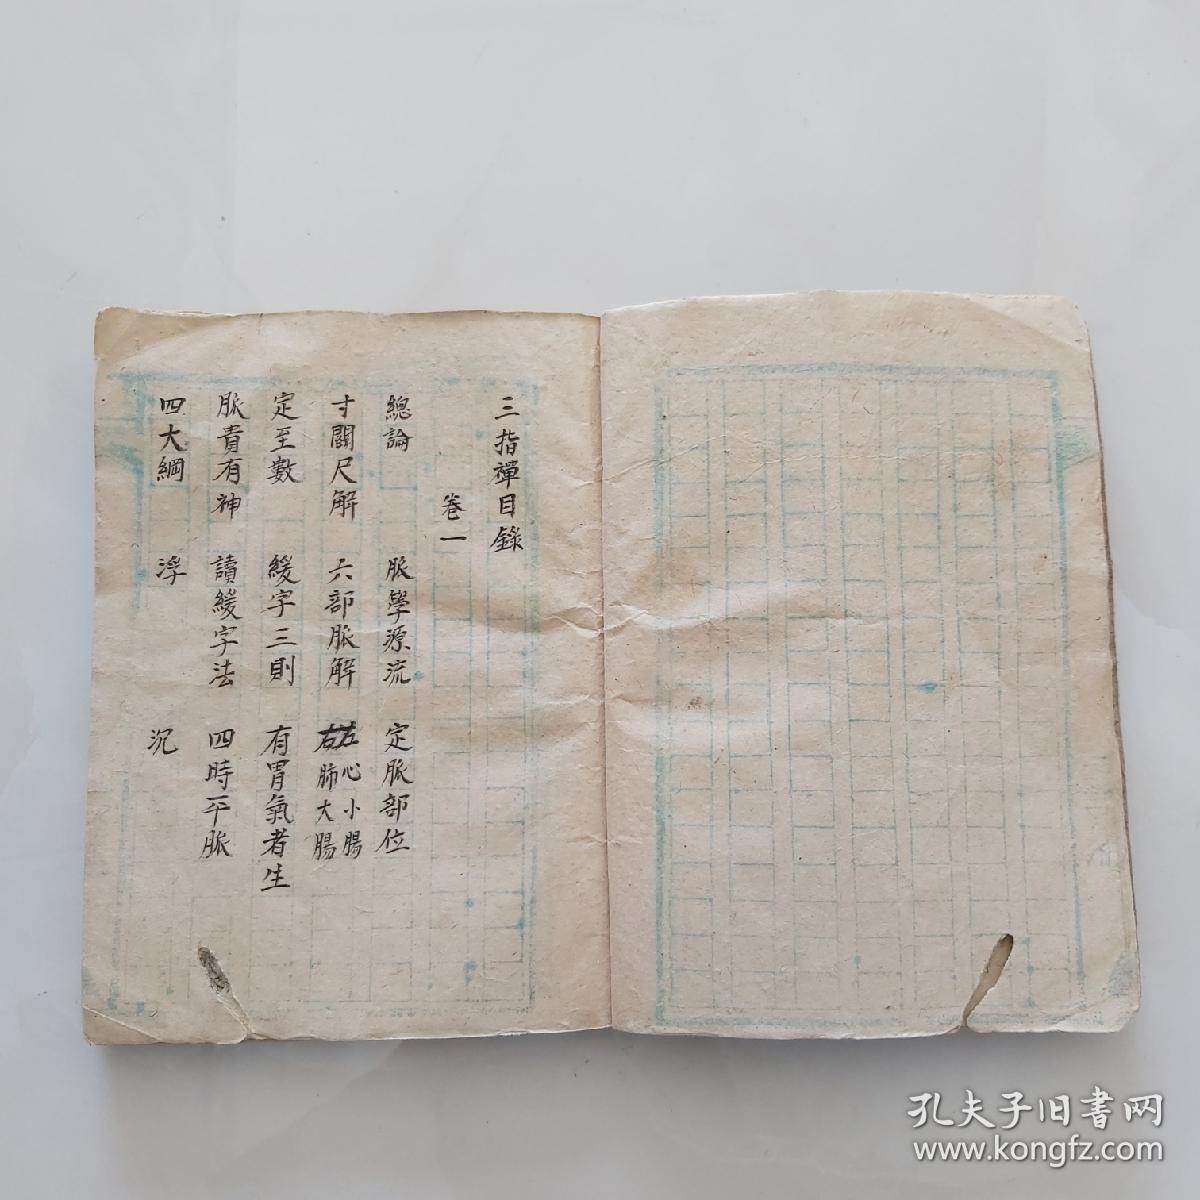 三指禪目錄
卷一
總論 脈學源流 定脈部位
寸關尺解 六部脈解 左心小腸 右肺大腸
定至數 緩字三則 有胃氣者生
脈貴有神 讀緩字法 四時平脈
四大綱 浮 沉
孔夫子旧书网
www.kongfz.com